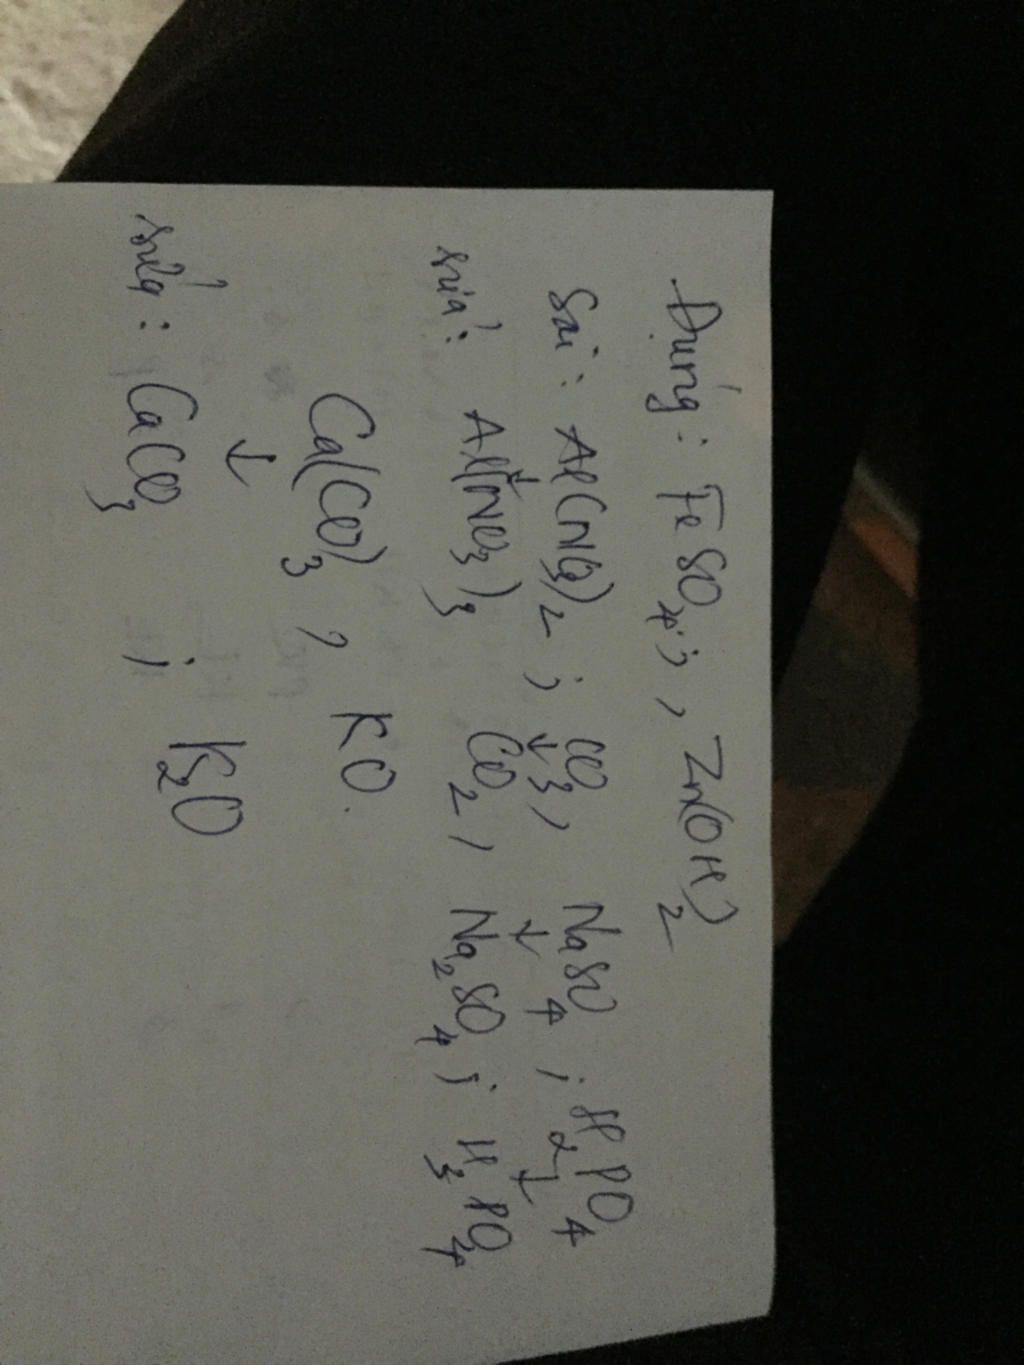 Đúng : FeSO4 ; , Zn(OH)2
Sai : Al(NO3)2 ; CO3 , NaSO4 ; H2PO4
↓ ↓ ↓ ↓
sửa : Al(NO3)3 CO2 , Na2SO4 ; H3PO4
Ca(CO)3 , KO.
↓
sửa : CaCO3 ; K2O